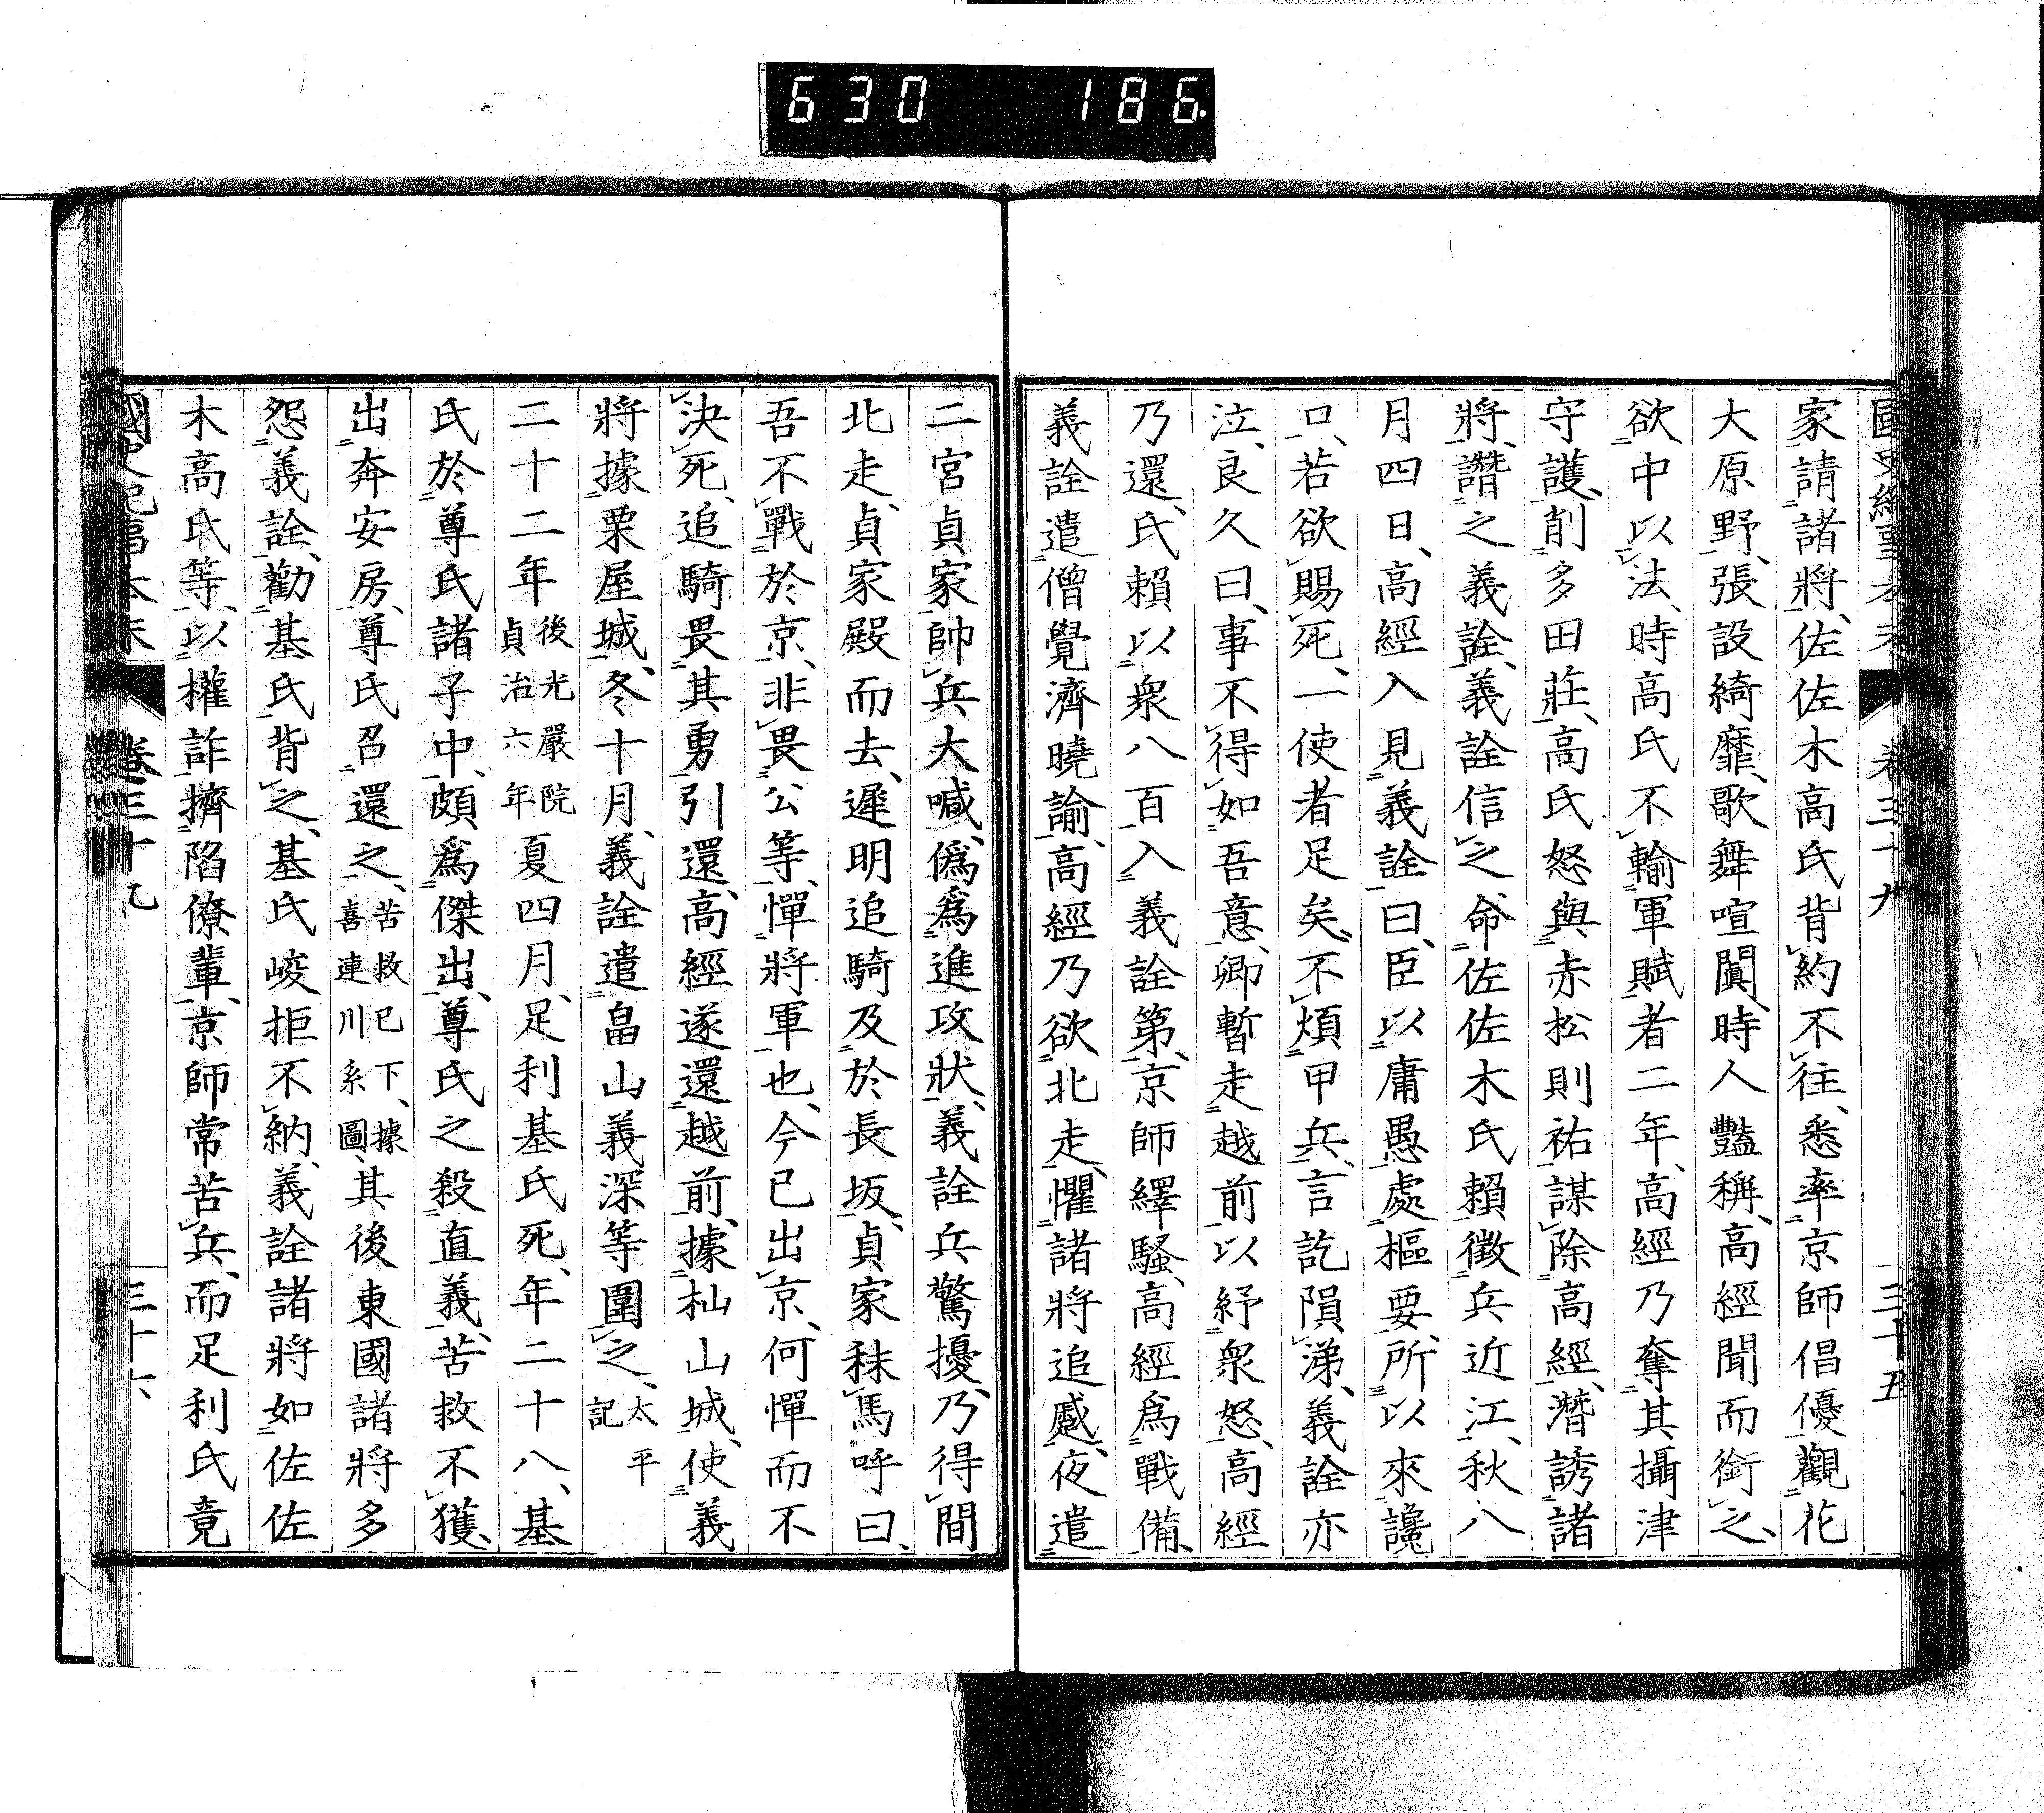 630 186
家請諸將、佐佐木高氏背約不往、悉率京師倡優、觀花
大原野、張設綺靡、歌舞喧闐、時人豔稱、高經聞而銜之、
欲中以法、時高氏不輸軍賦者二年、高經乃奪其攝津
守護、削多田莊、高氏怒、與赤松則祐謀除高經、潛誘諸
將、譖之義詮、義詮信之、命佐佐木氏賴徵兵近江、秋八
月四日、高經入見義詮曰、臣以庸愚處樞要、所以來讒
口、若欲賜死、一使者足矣、不煩甲兵、言訖隕涕、義詮亦
泣、良久曰、事不得如吾意、卿暫走越前、以紓衆怒、高經
乃還、氏賴以衆八百入義詮第、京師繹騷、高經爲戰備、
義詮遣僧覺濟曉諭、高經乃欲北走、懼諸將追蹙、夜遣
二宮貞家帥兵大喊、僞爲進攻狀、義詮兵驚擾、乃得間
北走、貞家殿而去、遲明追騎及於長坂、貞家秣馬呼曰、
吾不戰於京、非畏公等、憚將軍也、今已出京、何憚而不
決死、追騎畏其勇引還、高經遂還越前、據杣山城、使義
將據栗屋城、冬十月、義詮遣畠山義深等圍之、太平記
二十二年後光嚴院貞治六年夏四月、足利基氏死、年二十八、基
氏於尊氏諸子中、頗爲傑出、尊氏之殺直義、苦救不獲、
出奔安房、尊氏召還之、苦救已下、據喜連川系圖、其後東國諸將多
怨義詮、勸基氏背之、基氏峻拒不納、義詮諸將如佐佐
木高氏等、以權詐擠陷僚輩、京師常苦兵、而足利氏竟
國史紀事本末 卷三十九 三十六